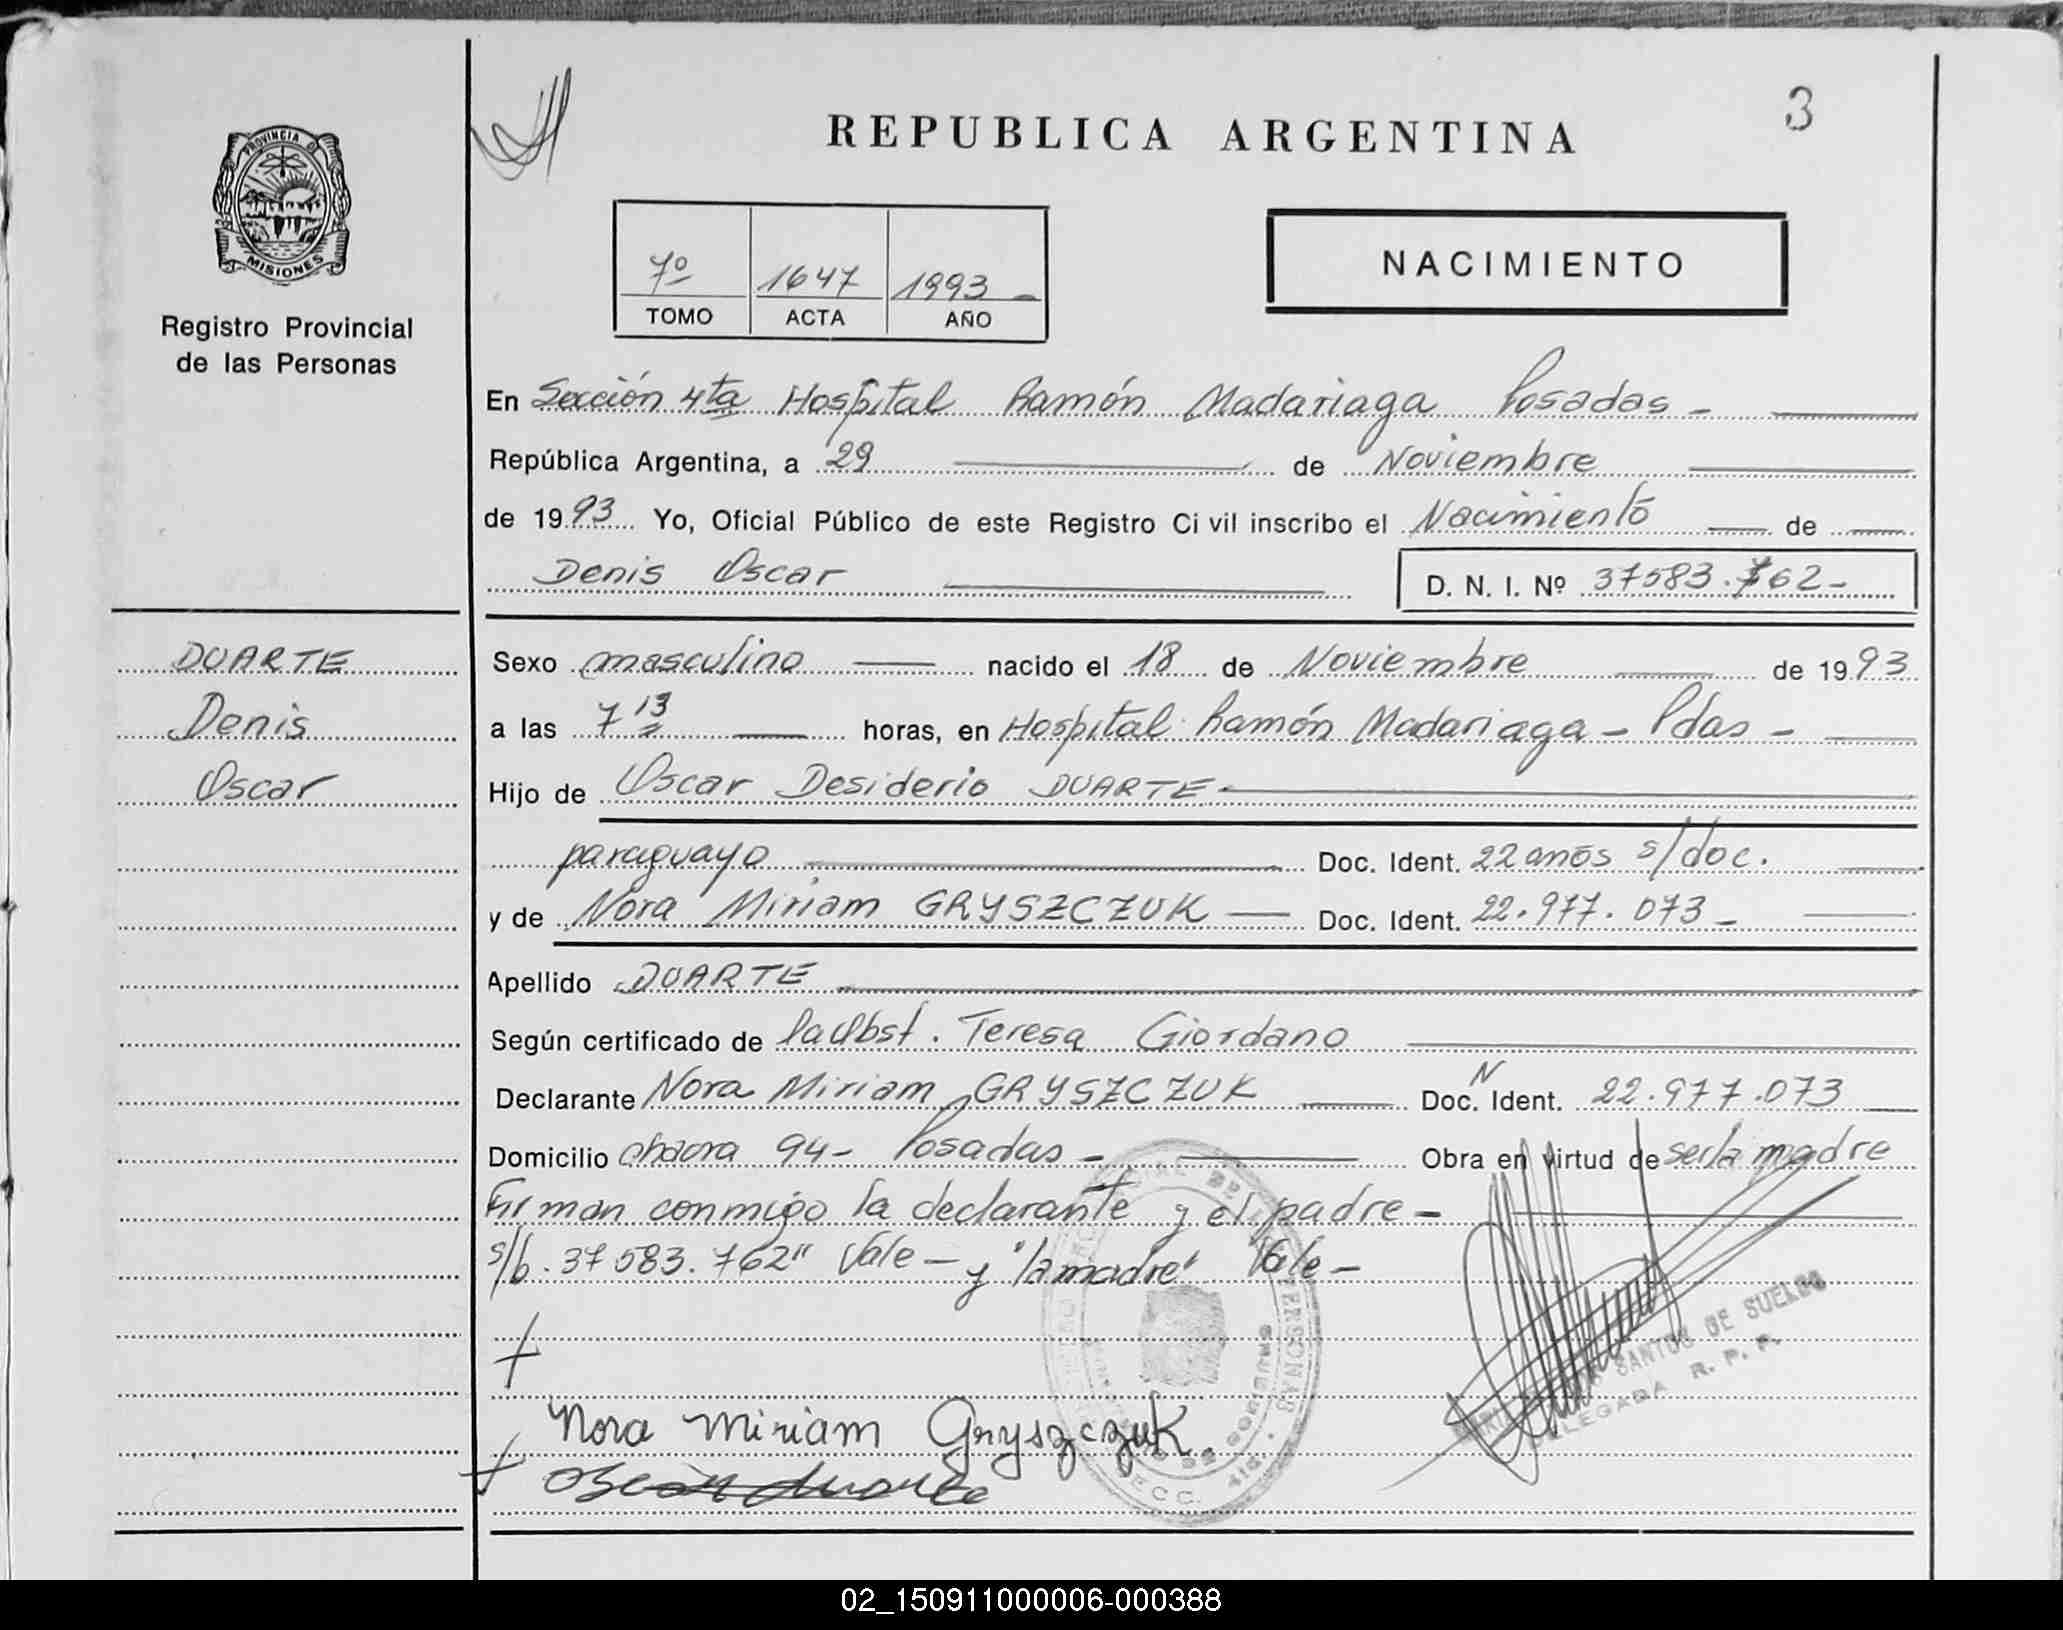 3
REPUBLICA ARGENTINA
PROVINCIA DE
MISIONES
Registro Provincial
de las Personas
7º 1647 1993
TOMO ACTA AÑO
NACIMIENTO
En Sección 4ta Hospital Ramón Madariaga Posadas -
República Argentina, a 29 de Noviembre
de 1993 Yo, Oficial Público de este Registro Civil inscribo el Nacimiento de
Denis Oscar D. N. I. Nº 37583.762-
DUARTE
Denis
Oscar
Sexo masculino nacido el 18 de Noviembre de 1993
a las 7 13 horas, en Hospital Ramón Madariaga - Pdas -
Hijo de Oscar Desiderio DUARTE
paraguayo Doc. Ident. 22 anos s/doc.
y de Nora Miriam GRYSZCZUK Doc. Ident. 22.977.073 -
Apellido DUARTE
Según certificado de la Obst. Teresa Giordano
Declarante Nora Miriam GRYSZCZUK Doc. N Ident. 22.977.073
Domicilio chacra 94- Posadas - Obra en virtud de ser la madre
Firman conmigo la declarante y el padre -
s/b. 37583.762" Vale - y "la madre" Vale -
Nora Miriam Gryszczuk
Oscar Duarte
SANTOS DE SUELDO
DELEGADA R. P. P.
02_150911000006-000388